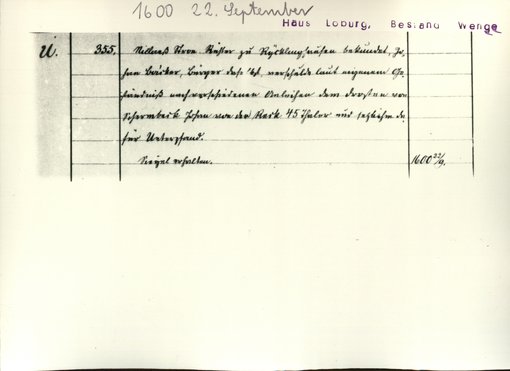 1600 22. September
Haus Loburg, Bestand Wenge
U. 355. Richter zu Rycklinghausen bekundet, Jo-
han Bäcker, Bürger das. verschulde laut eigenem Ge-
ständniß nach verschiedenen Anleihen dem Drosten von
Schermbeck Johan von der Reck 45 Thaler und setzt ihm da-
für Unterpfand.
Siegel erhalten. 1600 22/9.